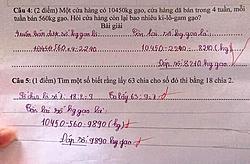 Câu 4: (2 điểm) Một cửa hàng có 10450kg gạo, cửa hàng đã bán trong 4 tuần, mỗi
tuần bán 560kg gạo. Hỏi cửa hàng còn lại bao nhiêu ki-lô-gam gạo?
Bài giải
số kg gạo là: còn lại số kg gạo là:
10450-560 10450-2240= 8210 (kg)
Đáp số: 8210 kg gạo
Câu 5: (1 điểm) Tìm một số biết rằng lấy 63 chia cho số đó thì bằng 18 chia 2.
18:2=9 lấy 63:9=7
còn lại số kg gạo là:
10450-560=9890 (kg)
Đáp số: 9890 kg gạo